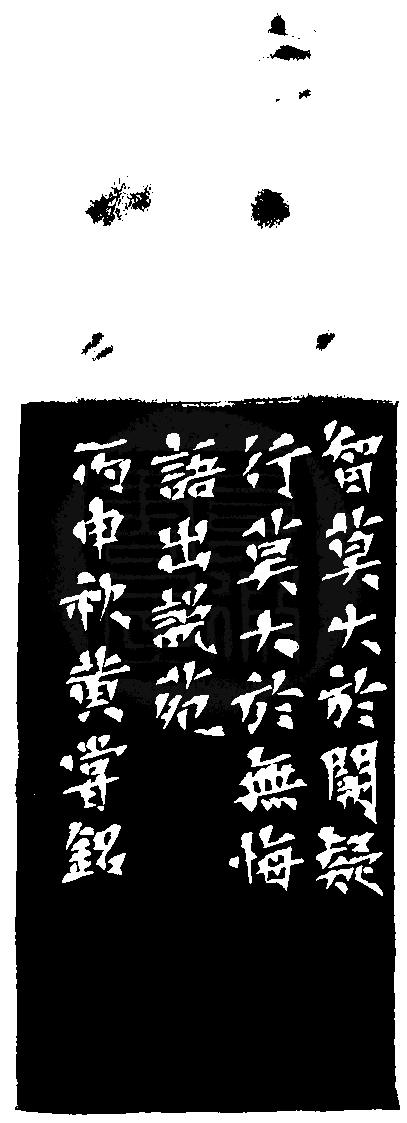 智莫大於闕疑
行莫大於無悔
語出說苑
丙申秋黃嘗銘